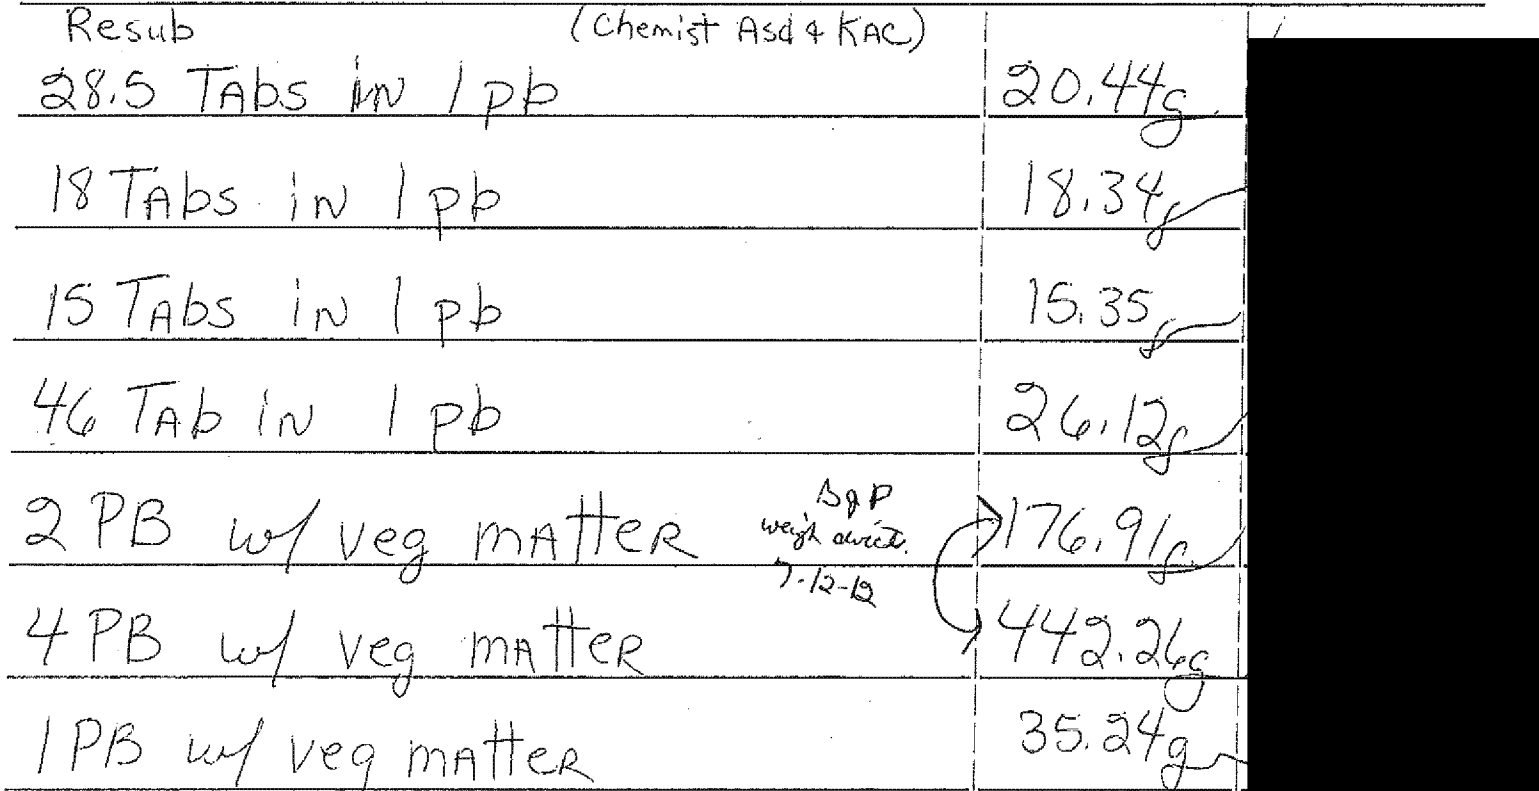 Resub (Chemist ASd & KAC)
28.5 TAbs in 1 pb 20.44g
18 TAbs in 1 pb 18.34g
15 TAbs in 1 pb 15.35g
46 TAb in 1 pb 26.12g
2 PB w/ veg mAtteR weigh 176.91g
7-12-12
4 PB w/ veg mAtteR 442.26g
1 PB w/ veg mAtteR 35.24g